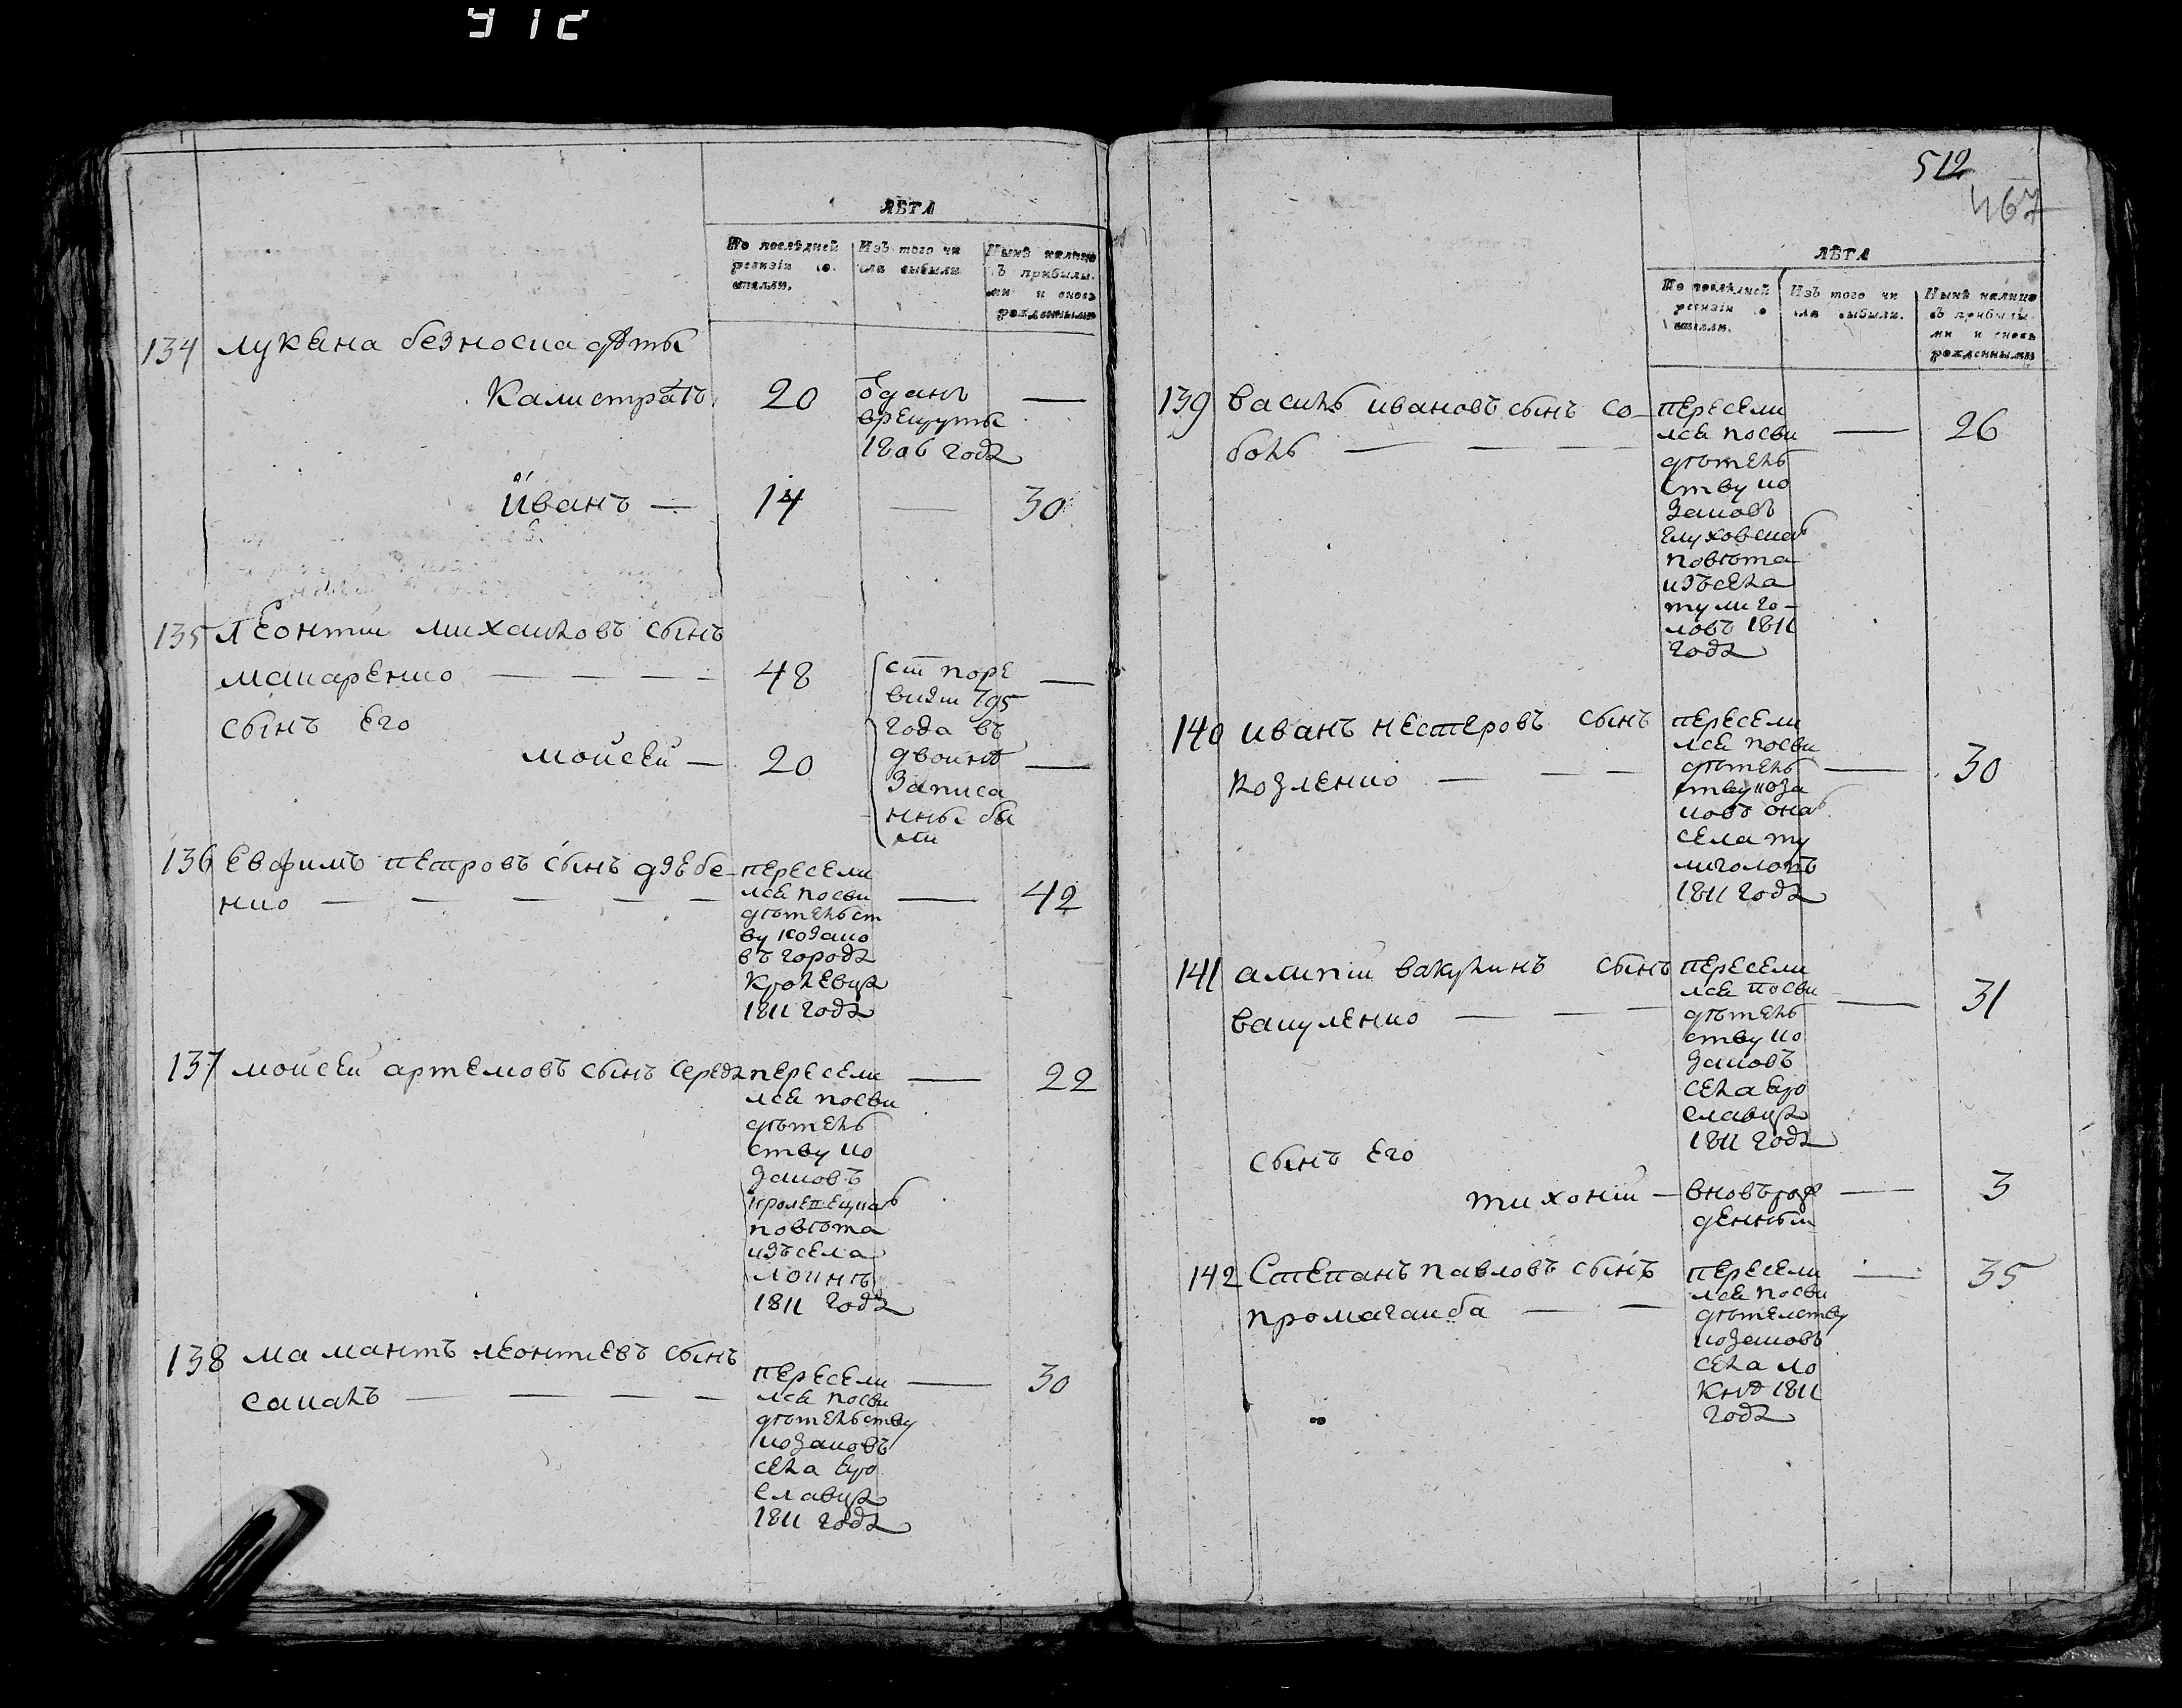 912
ЛѢТА
По послѣдней ревизіи состояли.
Изъ того числа выбыли
Нынѣ налицо съ прибылыми и вновь рожденными
134 лукяна безноска дѣти
Калистратъ 20 —
одани
врекруты
1806 года
иванъ — 14 — 30
135 Леонтии михаиловъ сынъ
макаренко — — — — 48 —
сынъ его
мойсей — 20 —
сии поре
визии 795
года въ
двоинѣ
записа
нны бы
ли
136 евфимъ петровъ сынъ дзѣбе-
нко — — — — — 42
пересели
лся посви
дѣтельст
ву козако
въ города
кролевца
1811 года
137 мойсей артемовъ сынъ середа — 22
пересели
лся посви
дѣтель
ству ко
заковъ
кролевецкаго
повѣта
изъ села
1811 года
138 мамантъ леонтиевъ сынъ
сакаль — — — — 30
пересели
лся посви
дѣтельству
козаковъ
села яро
славца
1811 года
512
467
ЛѢТА
По послѣдней ревизіи состояли.
Изъ того числа выбыли.
Нынѣ налицо съ прибылыми и вновь рожденными
139 василь ивановъ сынъ со-
боль — — — — 26
пересели
лся посви
дѣтель
ству ко
заковъ
глуховскаго
повѣта
изъ села
тулиго-
ловъ 1811
года
140 иванъ нестеровъ сынъ
козленко — — — — 30
пересели
лся посви
дѣтель
ству коза
ковъ онаго
села ту
лиголовъ
1811 года
141 алипии вакулинъ сынъ
вакуленко — — — — 31
пересели
лся посви
дѣтель
ству ко
заковъ
села яро
славца
1811 года
сынъ его
тихонии — — 3
вновьрож
денныи
142 Степанъ павловъ сынъ — 35
промагаиба — —
пересели
лся посви
дѣтелству
козаковъ
села ло
кнѣ 1811
года